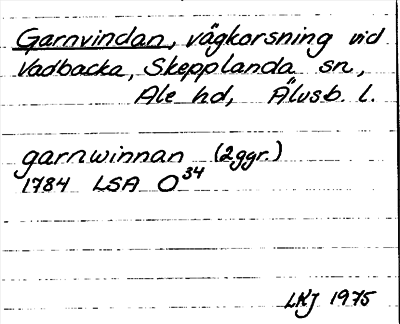 Garnvindan, vägkorsning vid
Vadbacka, Skepplanda sn,
Ale hd, Älvsb. l.
garnwinnan (2ggr.)
1784 LSA O³⁴
LKJ 1975